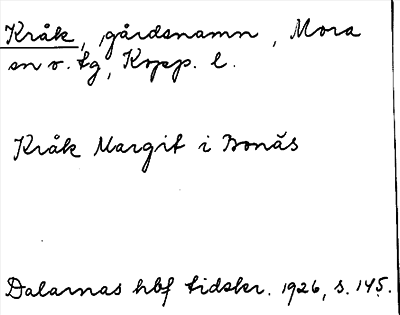 Kråk, gårdsnamn, Mora
sn o. tg, Kopp. l.
Kråk Margit i Bonäs
Dalarnas hbf tidskr. 1926, s. 145.